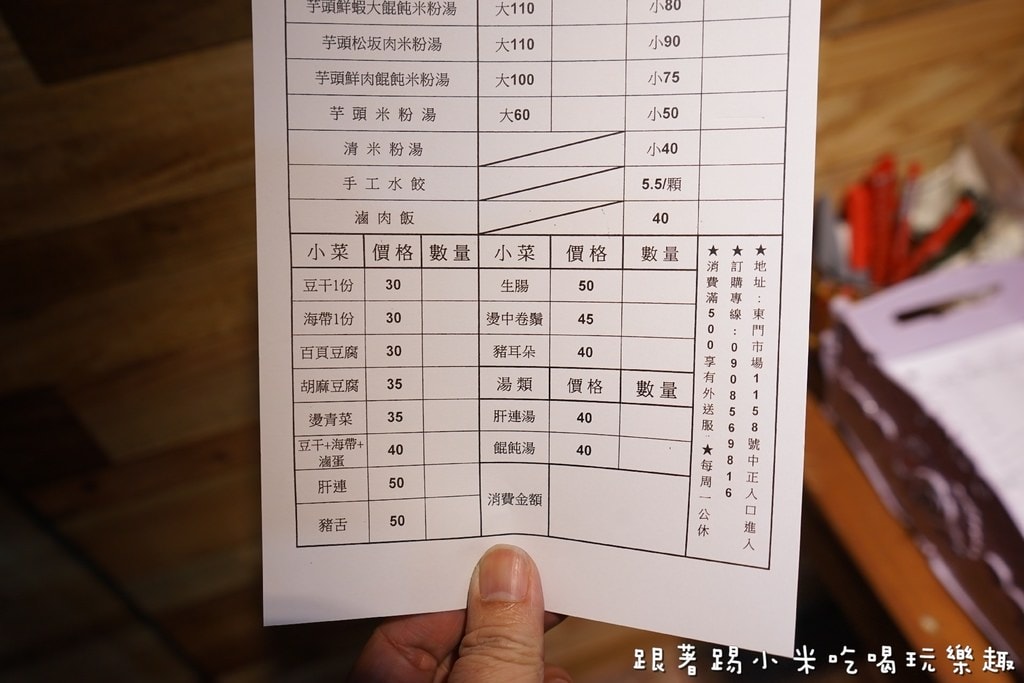 芋頭鮮蝦大餛飩米粉湯 大110 小80
芋頭松坂肉米粉湯 大110 小90
芋頭鮮肉餛飩米粉湯 大100 小75
芋頭米粉湯 大60 小50
清米粉湯 小40
手工水餃 5.5/顆
滷肉飯 40
小菜 價格 數量 小菜 價格 數量
豆干1份 30 生腸 50
海帶1份 30 燙中卷鬚 45
百頁豆腐 30 豬耳朵 40
胡麻豆腐 35 湯類 價格 數量
燙青菜 35 肝連湯 40
豆干+海帶+
滷蛋 40 餛飩湯 40
肝連 50 消費金額
豬舌 50
★地址:東門市場1158號中正入口進入
★訂購專線:0908569816
★消費滿500享有外送服 ★每周一公休
跟著踢小米吃喝玩樂趣